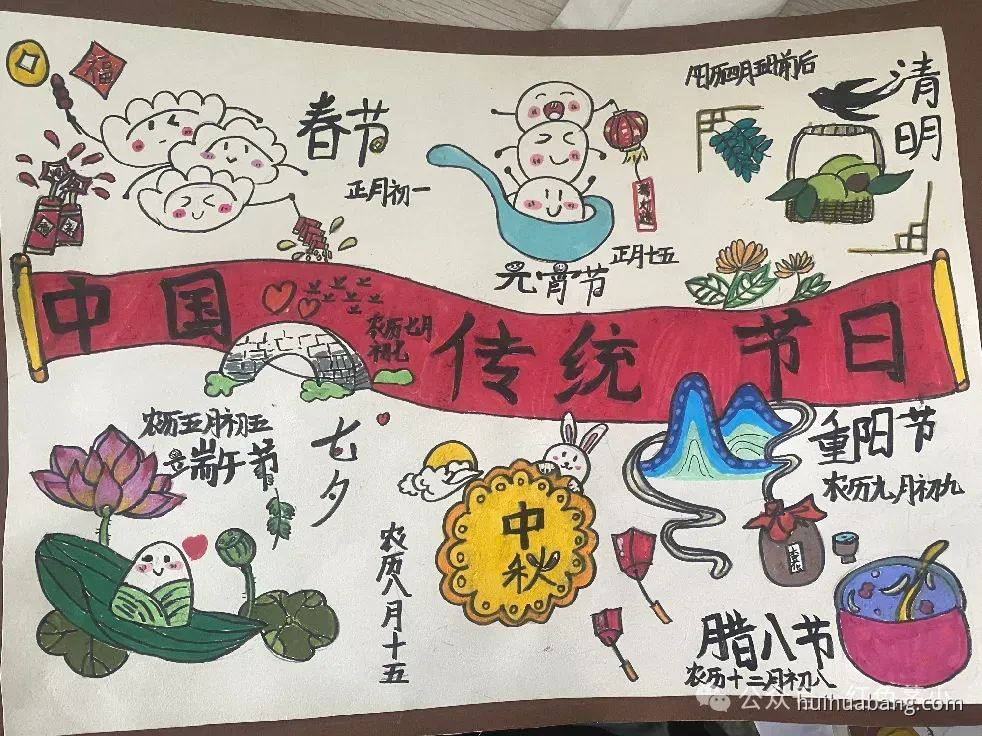 福
春节
正月初一
元宵节
正月十五
清明
中国传统节日
农历七月
初七
七夕
农历五月初五
端午节
中秋
农历八月十五
重阳节
农历九月初九
腊八节
农历十二月初八
huihuabang.com